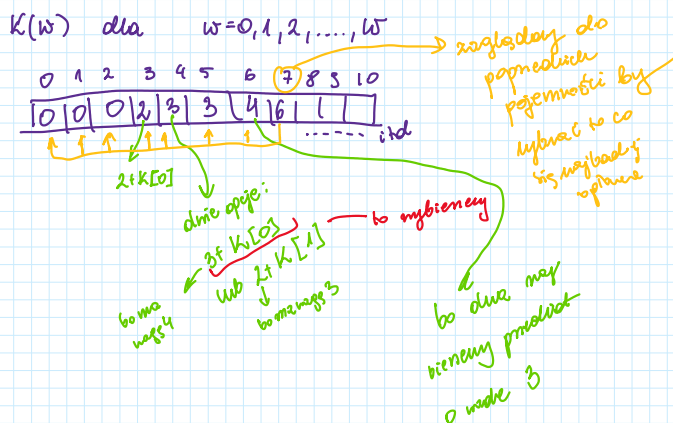 K(w) dla w=0,1,2,....,W
0 1 2 3 4 5 6 7 8 9 10
0 0 0 2 3 3 4 6
...... itd
zaglądamy do
poprzednich
pojemności by
wybrać to co
się najbardziej
opłaca
2+K[0]
dwie opcje:
3+K[0]
lub 2+K[1]
to wybieramy
bo ma
wagę 4
bo ma wagę 3
bo dwa razy
bierzemy przedmiot
o wadze 3